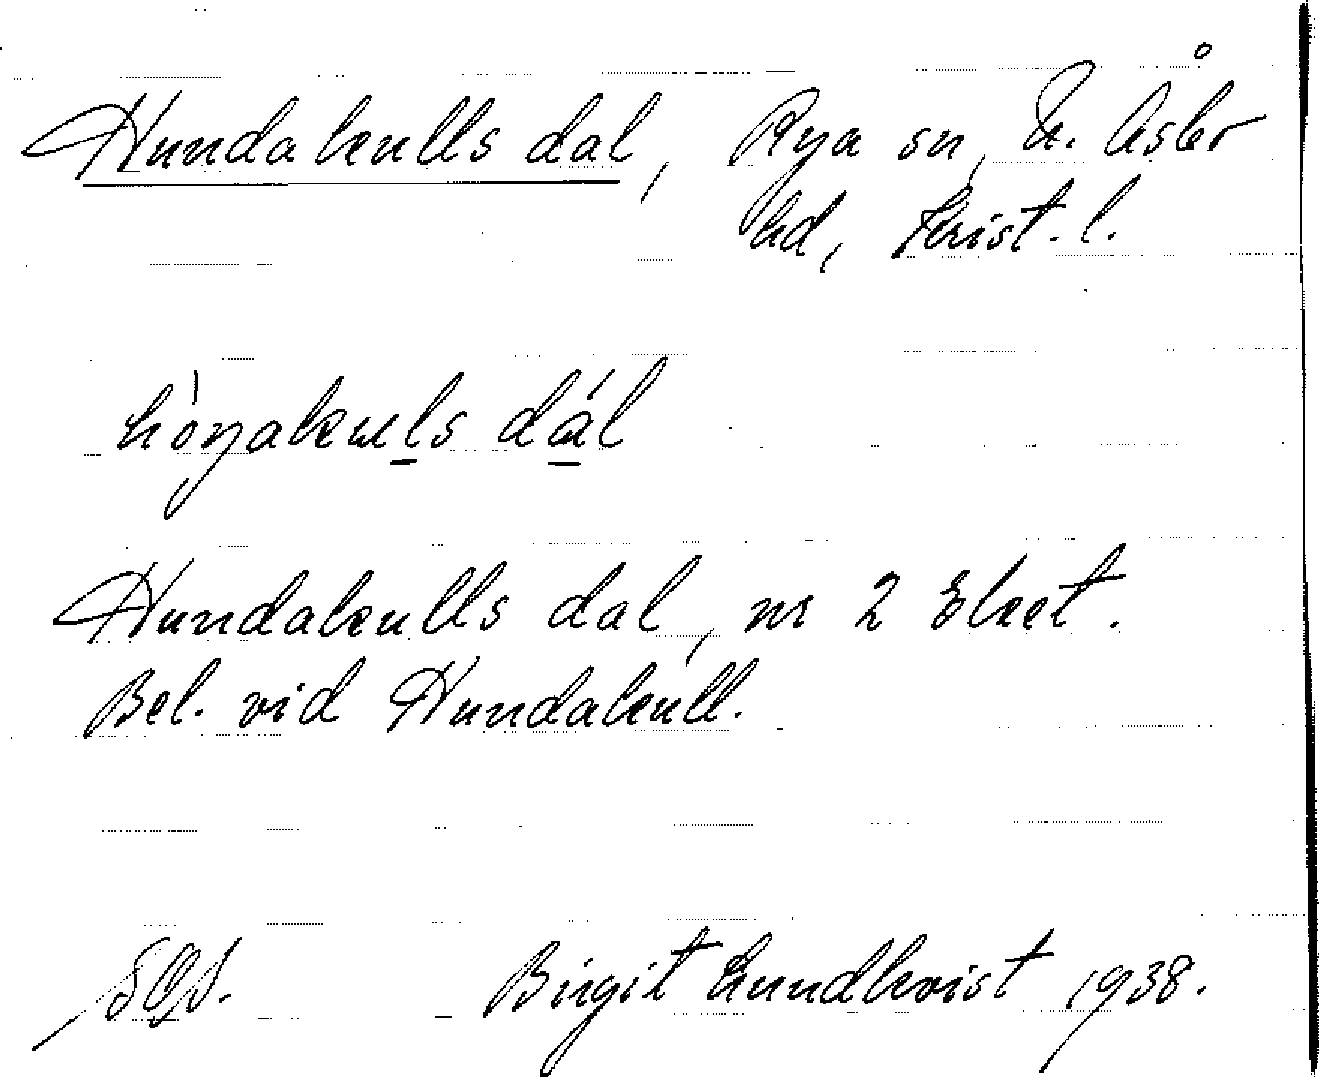 Hundakulls dal, Rya sn, N. Åsbo
hd, Krist. l.
hòŋakuls dál
Hundakulls dal, nr 2 Eket.
Bel. vid Hundakull.
SOS. Birgit Lundkvist 1938.